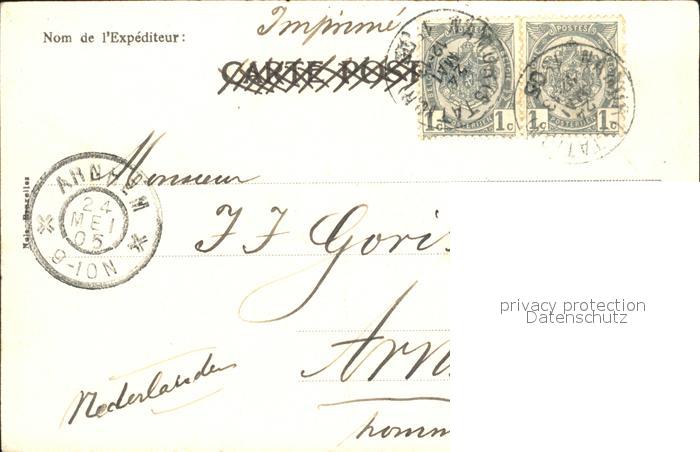 Imprimé
Nom de l'Expéditeur:
CARTE POST
POSTES POSTES
POSTERIJEN POSTERIJEN
1c 1c 1c 1c
Monsieur
ARNHEM
24
MEI
05
9-10N
J J Goris
privacy protection
Datenschutz
Arn
Nederlanden